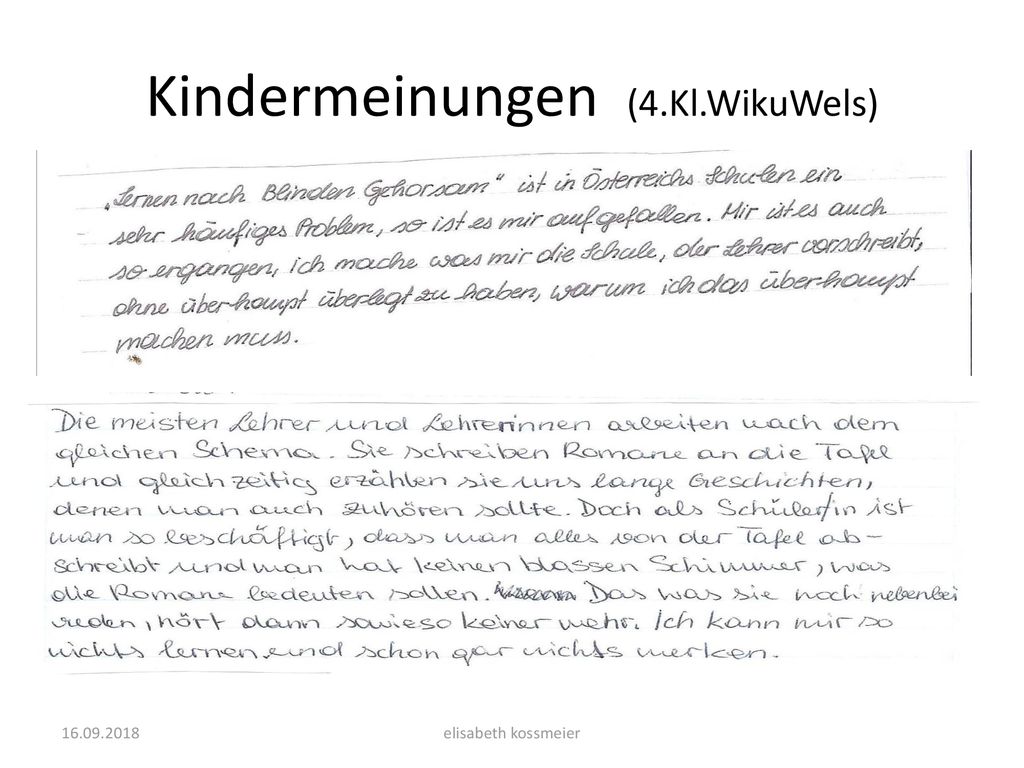 Kindermeinungen (4.Kl.WikuWels)
„Lernen nach Blinden Gehorsam" ist in Österreichs Schulen ein
sehr häufiges Problem, so ist es mir aufgefallen. Mir ist es auch
so ergangen, ich mache was mir die Schule, der Lehrer vorschreibt,
ohne überhaupt überlegt zu haben, warum ich das überhaupt
machen muss.
Die meisten Lehrer und Lehrerinnen arbeiten nach dem
gleichen Schema. Sie schreiben Romane an die Tafel
und gleichzeitig erzählen sie uns lange Geschichten,
denen man auch zuhören sollte. Doch als Schüler/in ist
man so beschäftigt, dass man alles von der Tafel ab-
schreibt und man hat keinen blassen Schimmer, was
die Romane bedeuten sollen. Das was sie noch nebenbei
reden, hört dann sowieso keiner mehr. Ich kann mir so
nichts lernen und schon gar nichts merken.
16.09.2018
elisabeth kossmeier